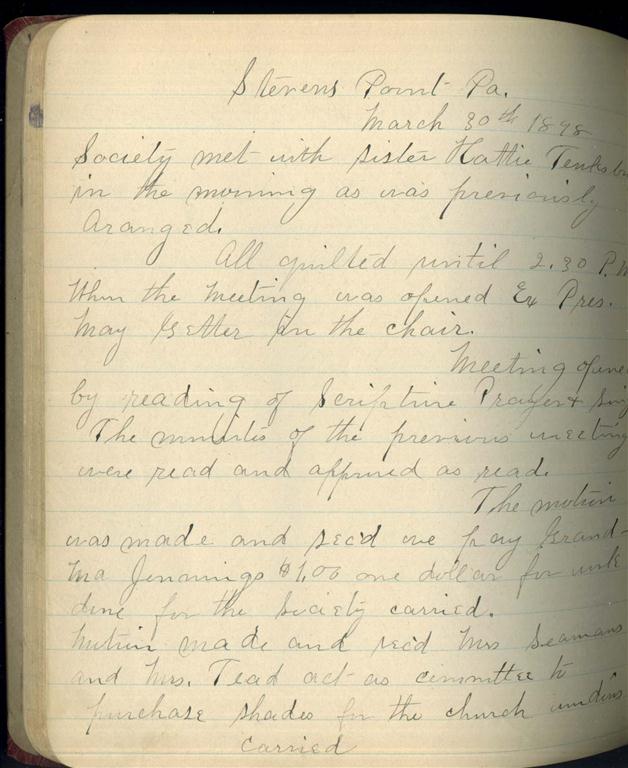 Stevens Point Pa.
March 30th 1898
Society met with sister Hattie
in the morning as was previously
aranged.
All quilted until 2.30 P.M
When the meeting was opened Ex Pres.
May Getter in the chair.
Meeting opened
by reading of Scripture Prayer & Sing
The minutes of the previous meeting
were read and approved as read.
The motion
was made and sec'd we pay Grand-
ma Jennings $1.00 one dollar for work
done for the Society carried.
Motion made and sec'd Mrs Seamans
and Mrs. Tead act as committee to
purchase shades for the church windows
Carried